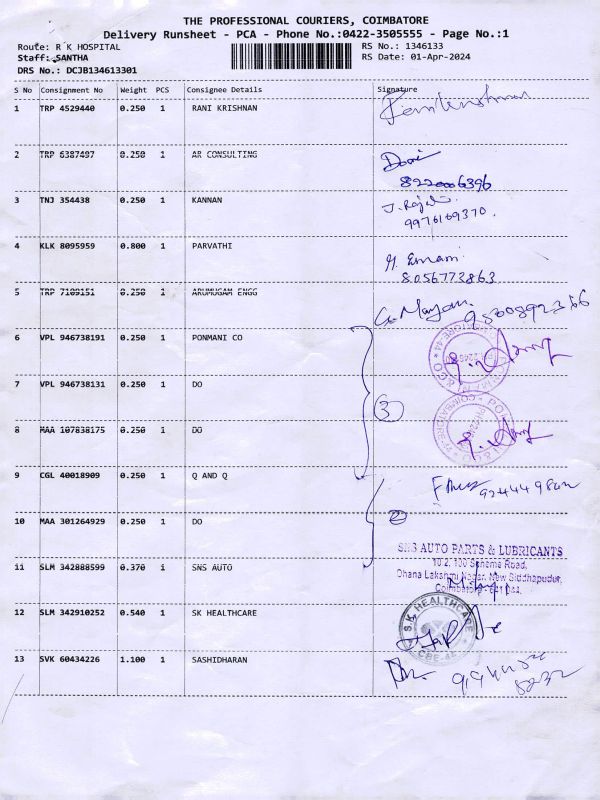 THE PROFESSIONAL COURIERS, COIMBATORE
Delivery Runsheet - PCA - Phone No.:0422-3505555 - Page No.:1
Route: R K HOSPITAL RS No.: 1346133
Staff: SANTHA RS Date: 01-Apr-2024
DRS No.: DCJB134613301
S No Consignment No Weight PCS Consignee Details Signature
1 TRP 4529440 0.250 1 RANI KRISHNAN
2 TRP 6387497 0.250 1 AR CONSULTING
8220006396
3 TNJ 354438 0.250 1 KANNAN
9976169370.
4 KLK 8095959 0.800 1 PARVATHI
8056773863
5 TRP 7109151 0.250 1 ARUMUGAM ENGG
6 VPL 946738191 0.250 1 PONMANI CO
7 VPL 946738131 0.250 1 DO
3
8 MAA 107838175 0.250 1 DO
9 CGL 40018909 0.250 1 Q AND Q
10 MAA 301264929 0.250 1 DO
2
SNS AUTO PARTS & LUBRICANTS
11 SLM 342888599 0.370 1 SNS AUTO
Dhana Lakshmi Nagar, New Siddhapudur,
12 SLM 342910252 0.540 1 SK HEALTHCARE
S.K HEALTHCARE
13 SVK 60434226 1.100 1 SASHIDHARAN